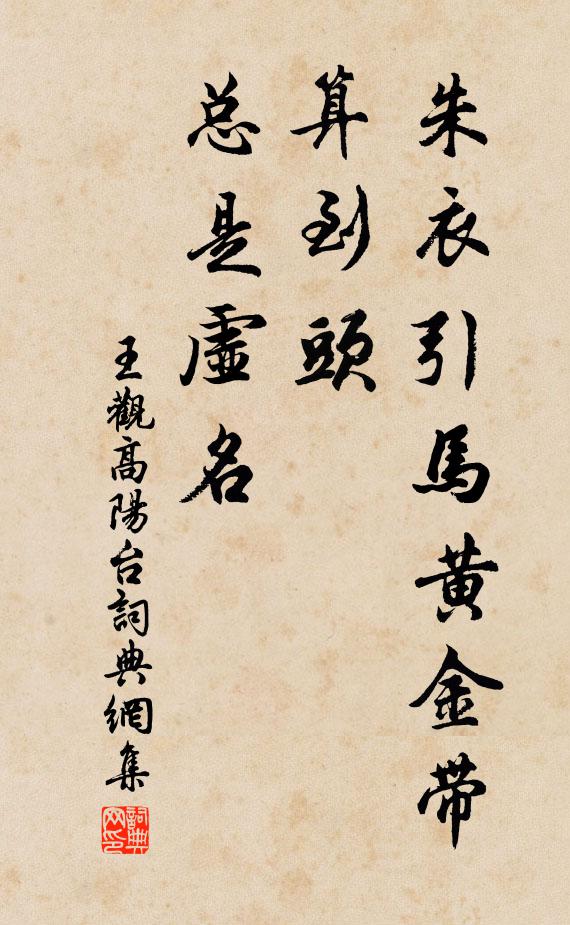 朱衣引馬黄金带
算到頭
总是虛名
王觀高陽台詞典網集
詞典网印